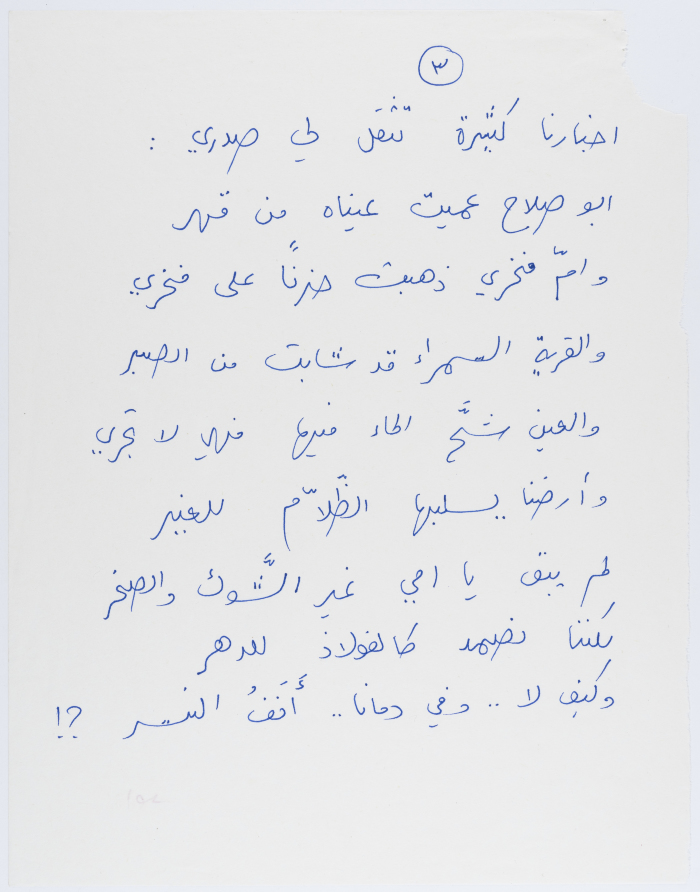 ٣
اخبارنا كثيرة تثقل لي صدري :
ابو صلاح عميت عيناه من قهر
وامّ فخري ذهبت حزنًا على فخري
والقرية السمراء قد شابت من الصبر
والعين شحَّ الماء فيها فهي لا تجري
وأرضنا يسلبها الظّلاّم للغير
لم يبق يا امي غير الشَّوك والصخر
لكننا نصمد كالفولاذ للدهر
وكيف لا .. وفي دمانا .. أَنَفُ النسر ؟!